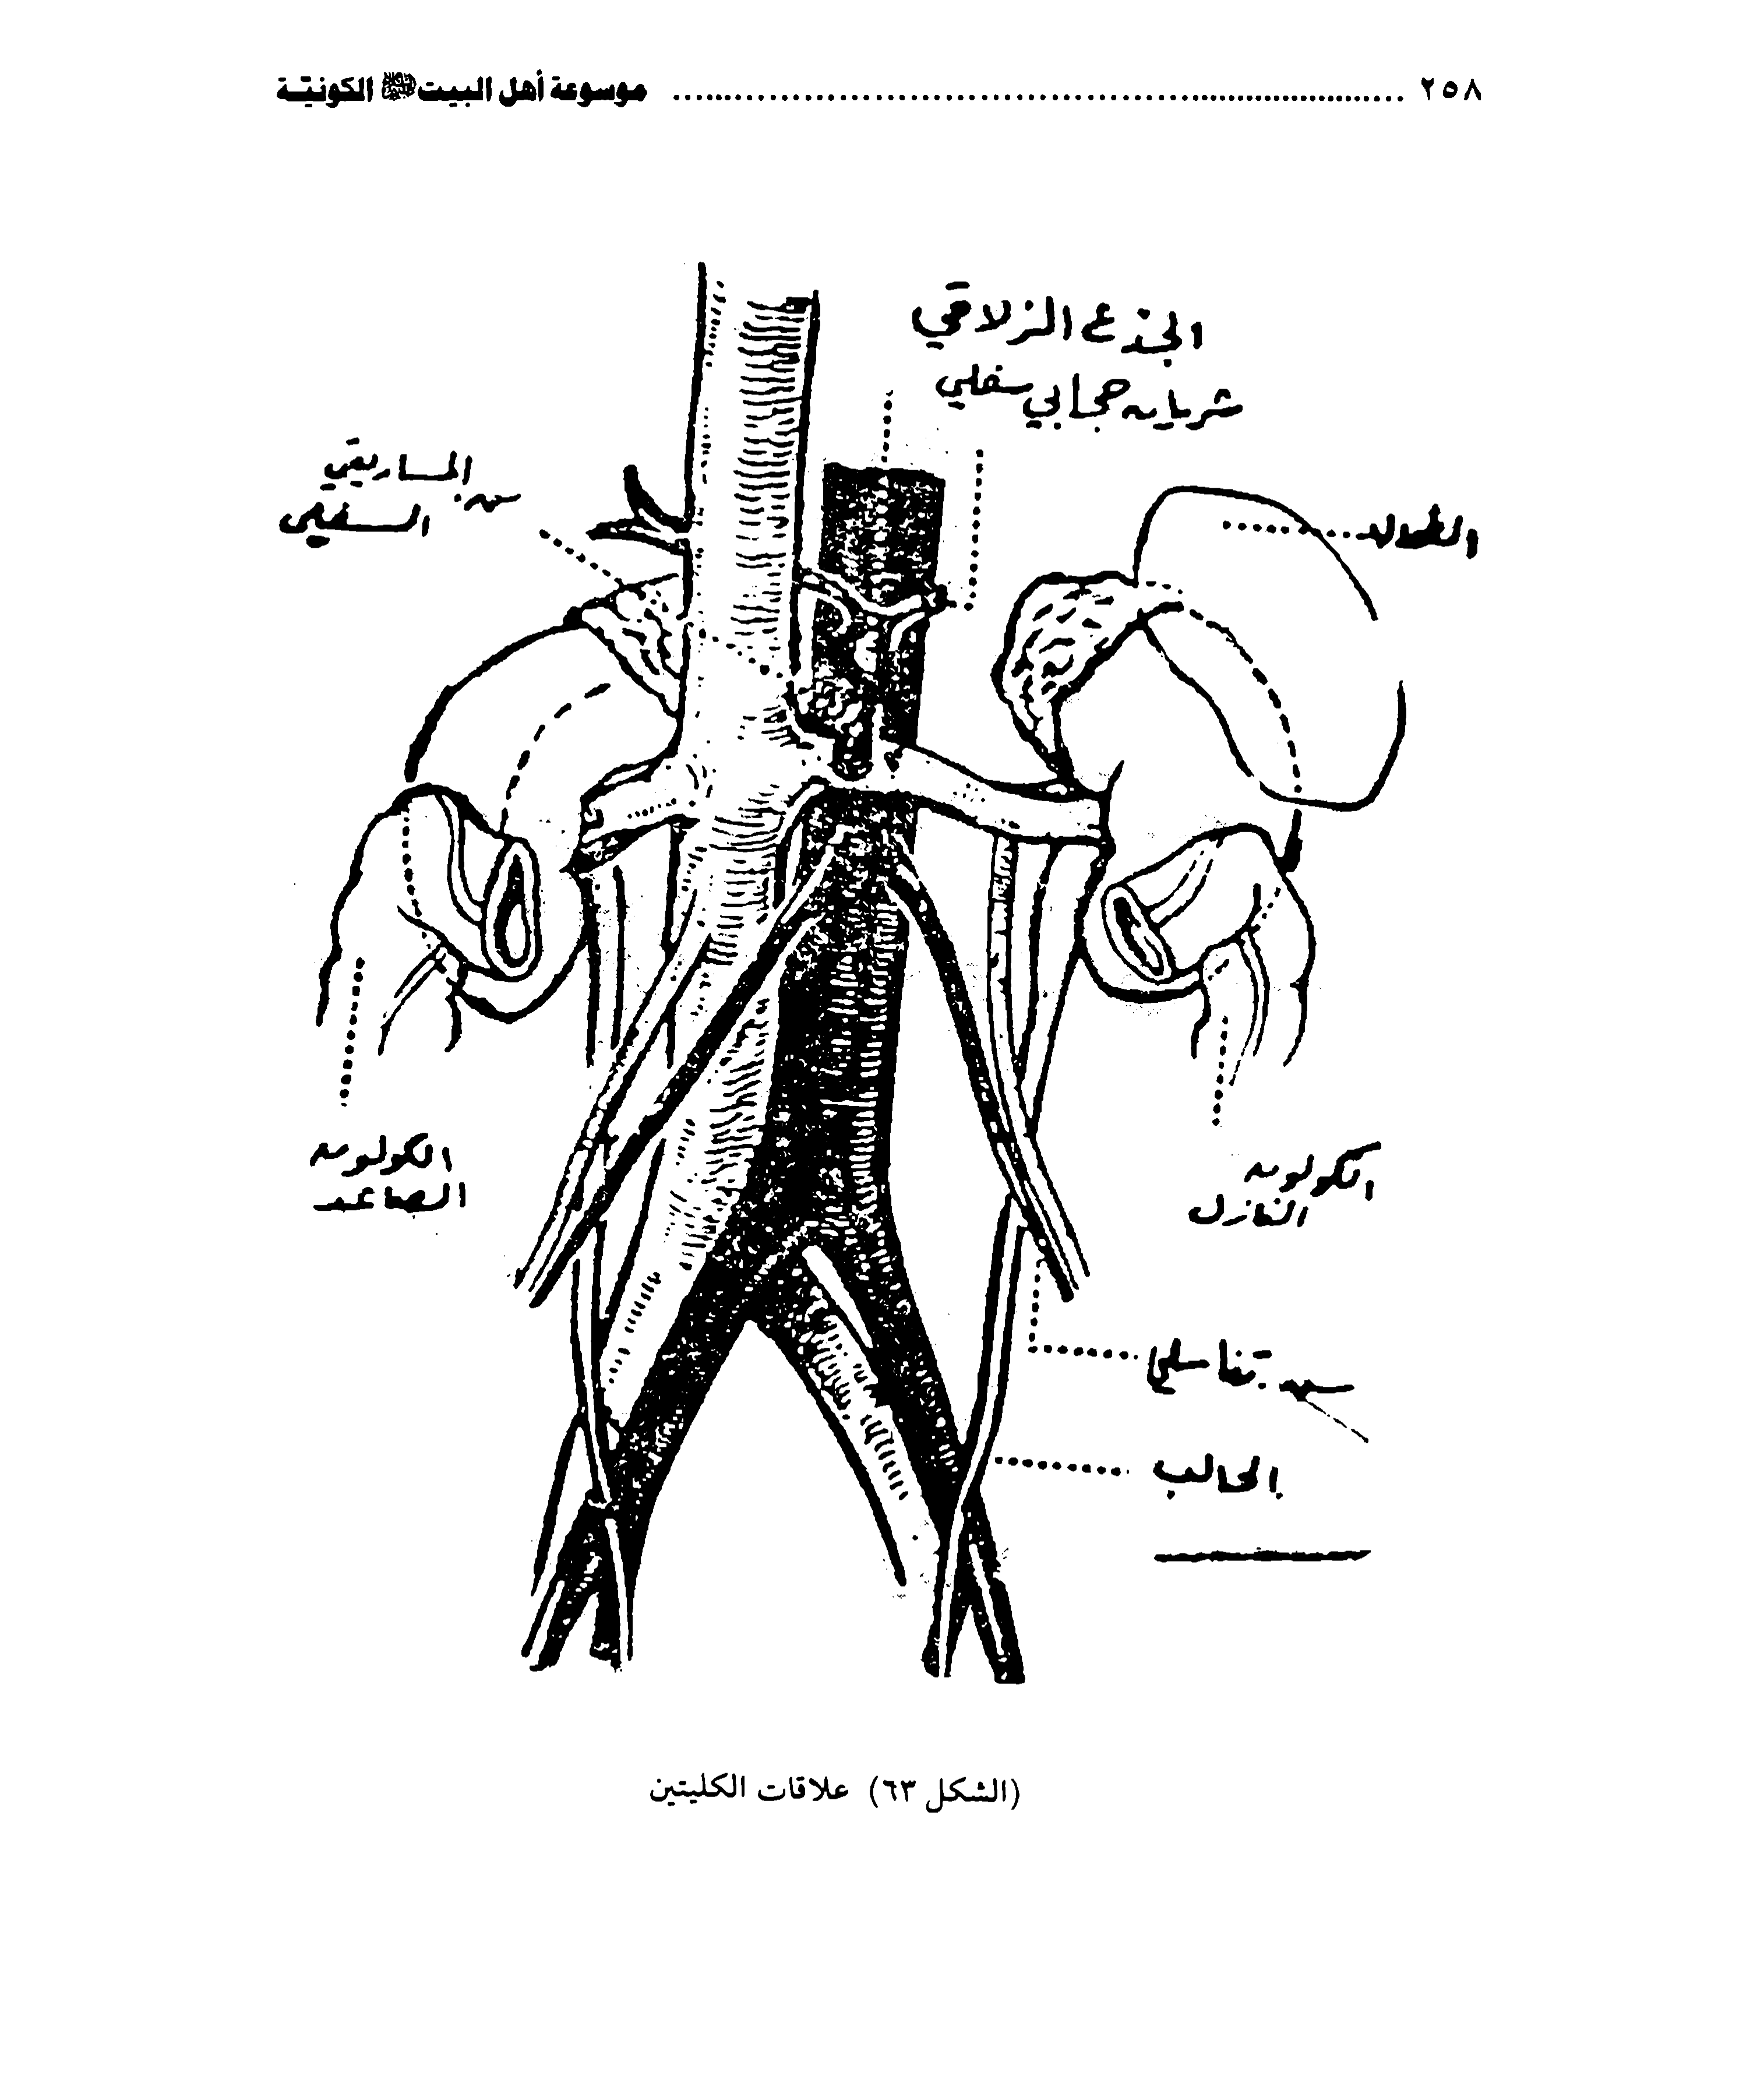 ٢٥٨ ................ موسوعة أهل البيت ﷺ الكونيّة
الجذع الزلاقي
شريان حجابي سفلي
الطحال
الماريقي
السفلي
الكولون
الصاعد
الكولون
النازل
تناسلي
الحالب
(الشكل ٦٣) علاقات الكليتين